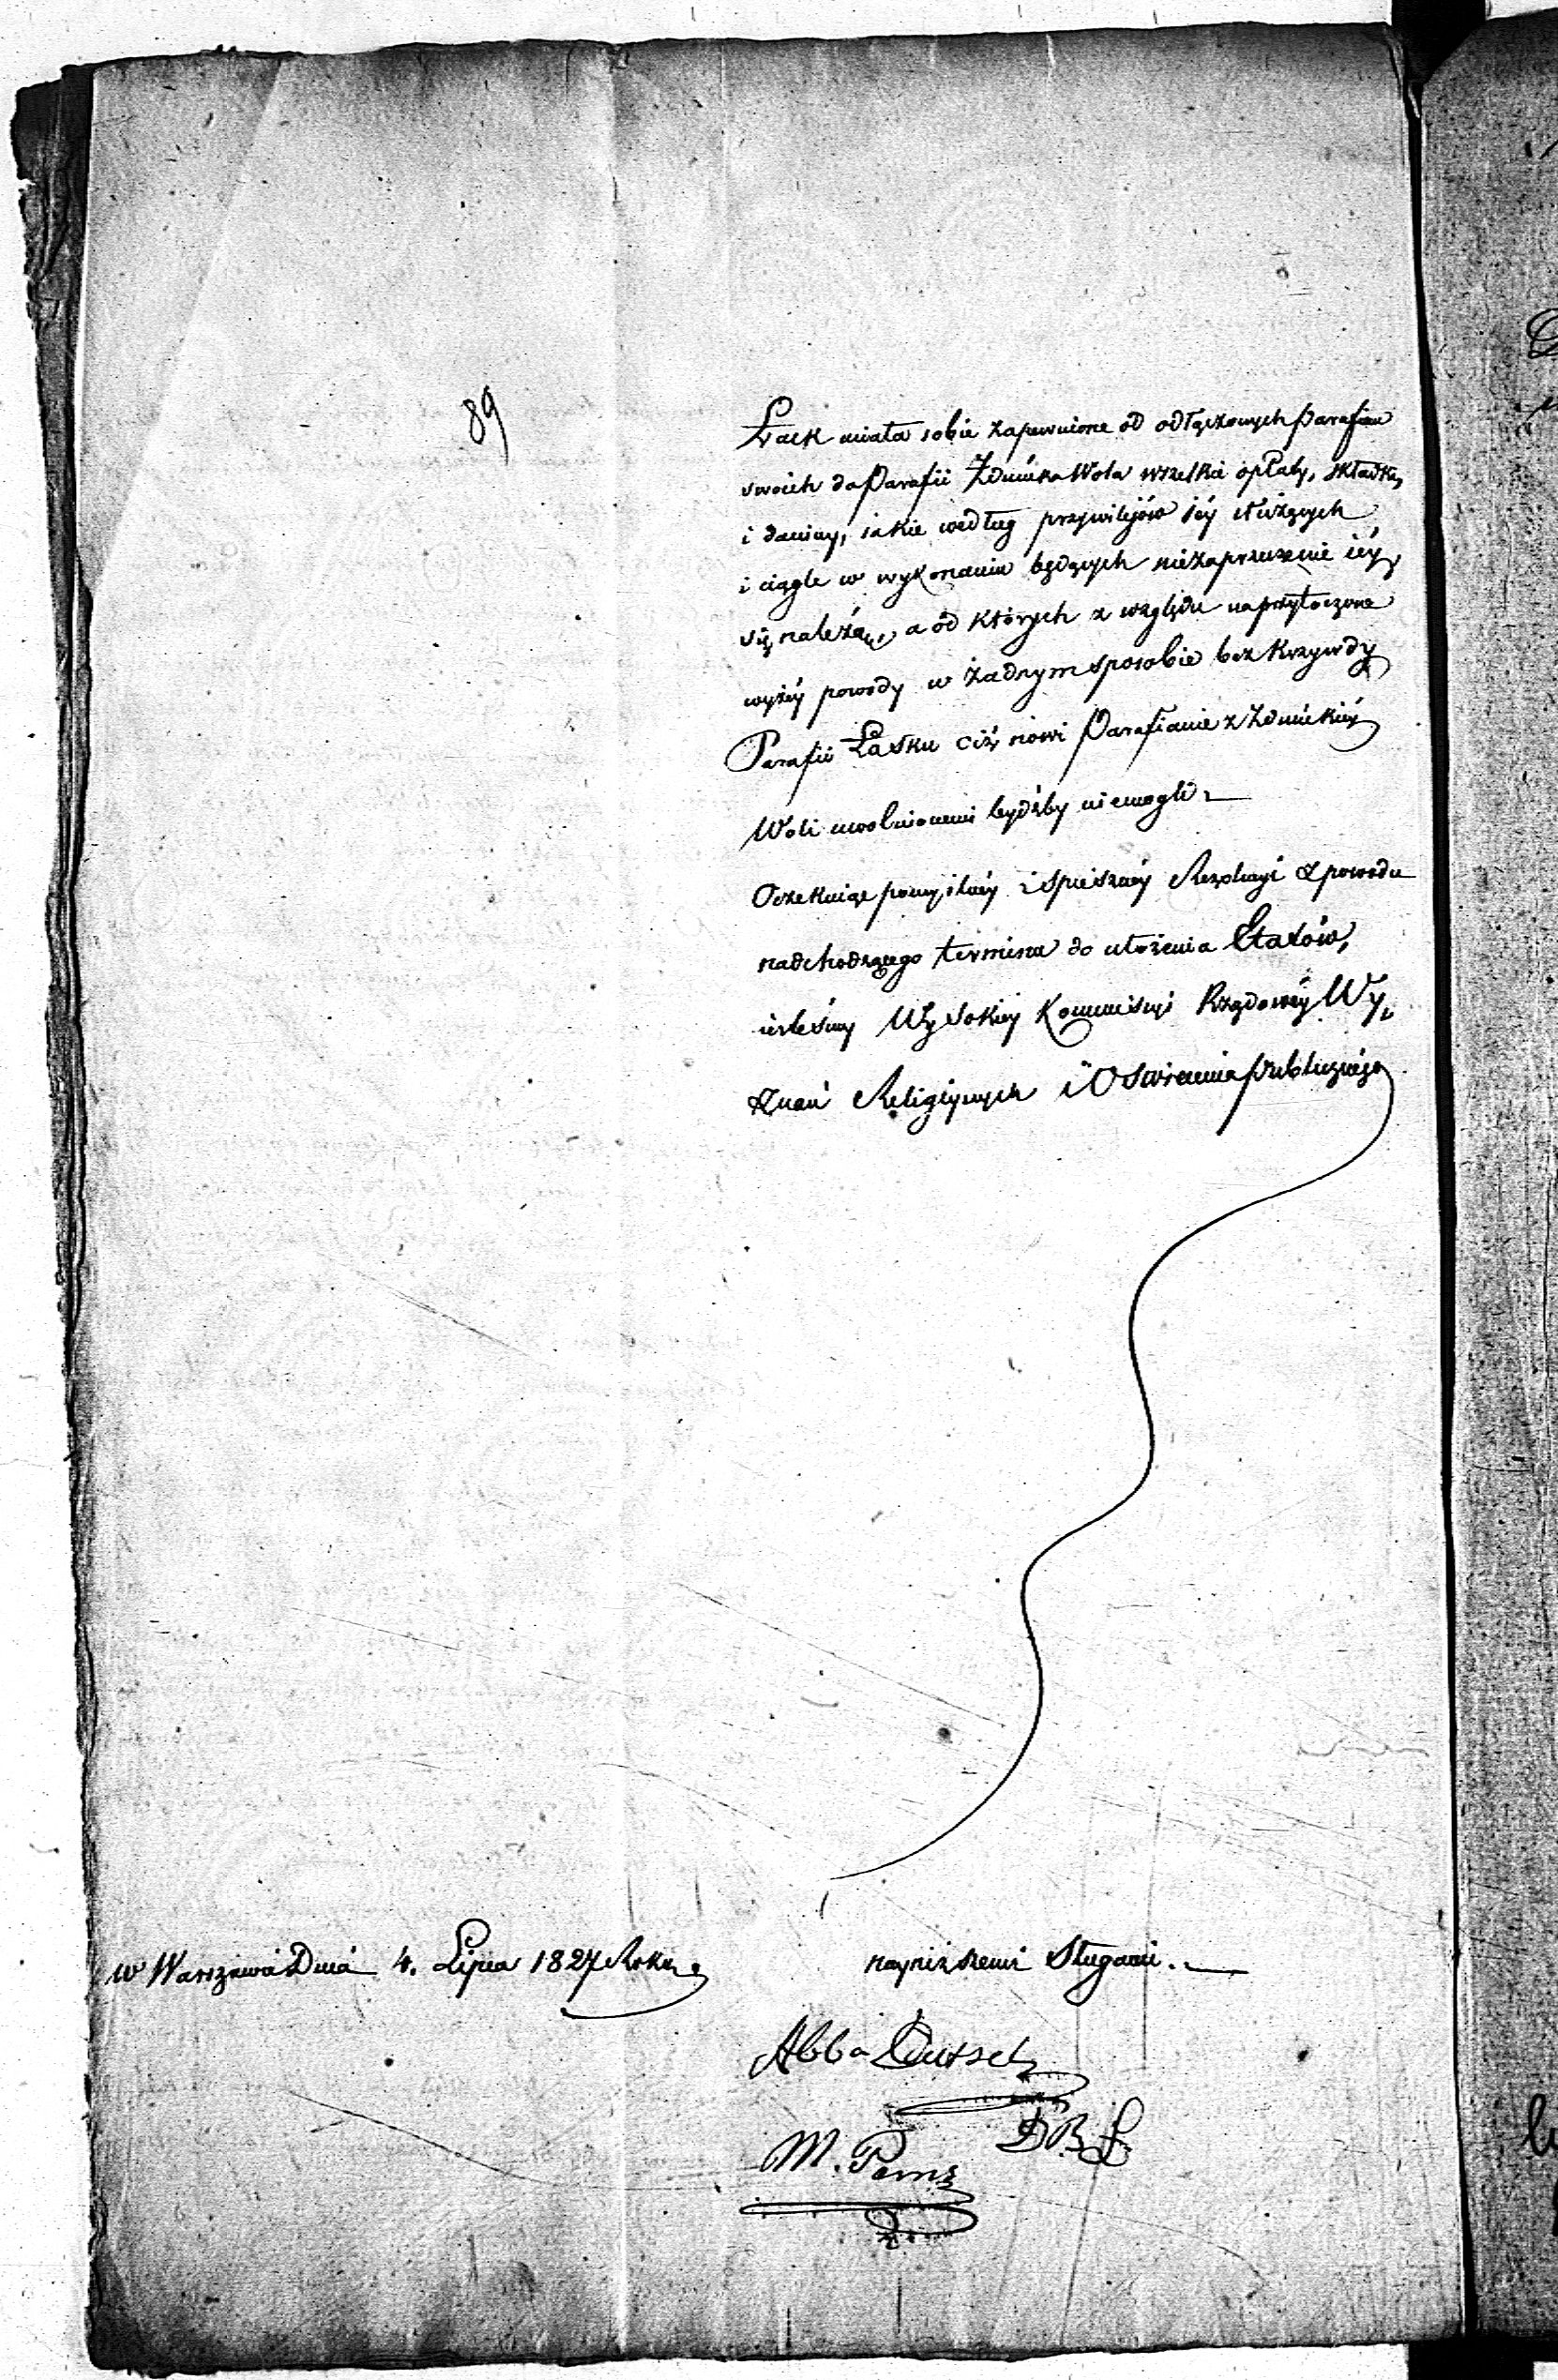 89
Łask miała sobie zapewnione od odłączonych Parafian
swoich do Parafii Zduńska Wola wszelkie opłaty, składki,
i daniny, iakie według przywilejów jéy służących
i ciągle w wykonaniu będących niezaprzeczenie iéy
się należą, a od których z względu na przytoczone
wyżéy powody w żadnym sposobie bez krzywdy
Parafii Łasku ciż nowi Parafianie z Zduńskiéy
Woli uwolnionemi bydźby niemogli.
Oczekuiąc pomyślnéy i spieszney Rezolucyi z powodu
nadchodzącego terminu do ułożenia Etatów,
iesteśmy Wysokiey Kommissyi Rządowéy Wy„
znań Religiynych i Oświecenia Publicznego
w Warszawie Dnia 4. Lipca 1827 Roku.
nayniższemi Sługami.
Abba
DBŁ
M.